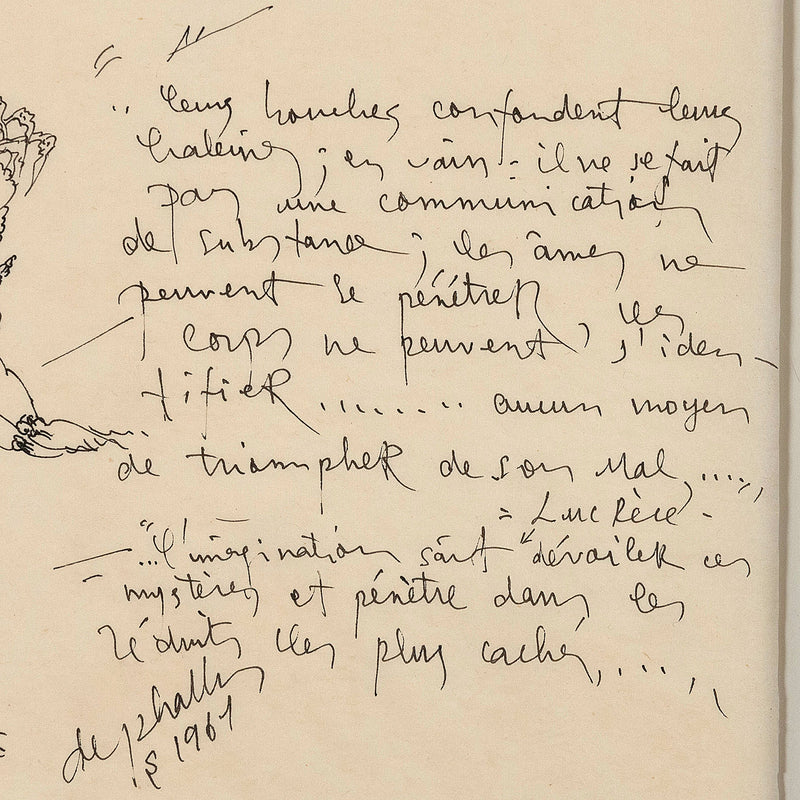 .. leurs bouches confondent leurs
haleines ; en vain : il ne se fait
pas une communication
de substance ; les âmes ne
peuvent se pénétrer , les
corps ne peuvent s'iden-
tifier ........ aucun moyen
de triompher de son mal ....,
= Lucrèce -
"... l'imagination sait dévoiler ces
mystères et pénètre dans les
réduits les plus cachés, ....
de phallus
1967